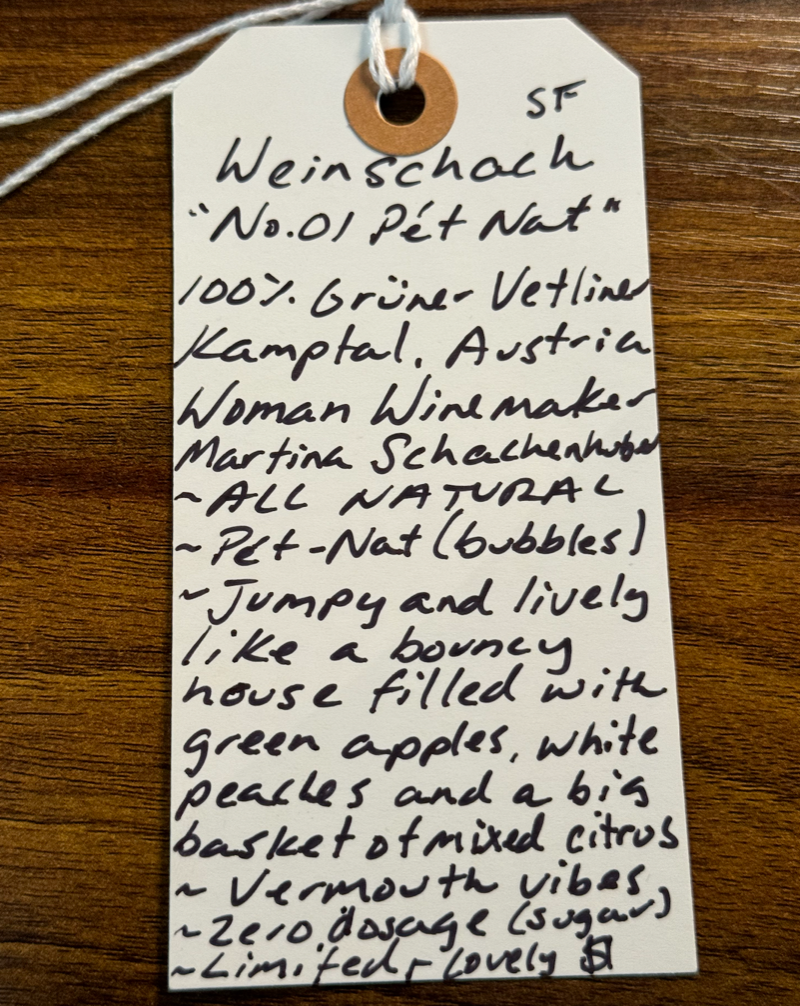 SF
Weinschach
"No.01 Pét Nat"
100% Grüner Vetliner
Kamptal, Austria
Woman Winemaker
Martina Schachenhuber
~ALL NATURAL
~Pét-Nat (bubbles)
~Jumpy and lively
like a bouncy
house filled with
green apples, white
peaches and a big
basket of mixed citrus
~Vermouth vibes
~Zero dosage (sugar)
~Limited + Lovely